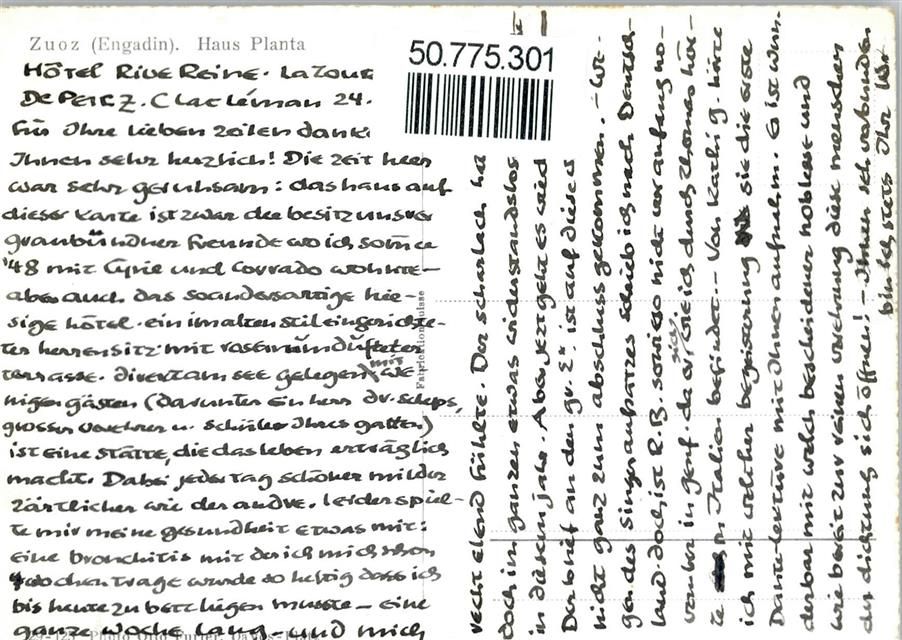 Zuoz (Engadin). Haus Planta
50.775.301
HÔTEL RIVE REINE. LA TOUR
DE PEILZ. Clarac léman 24.
Für Ihre lieben zeilen dank
Ihnen sehr herzlich! Die zeit hier
war sehr geruhsam: das haus auf
dieser karte ist zwar der besitz unsrer
graubündner freunde wo ich somer
'48 mit Cyril und Corrado wohnte–
aber auch das soandersartige hie-
sige hôtel. ein im alten stil eingerichte-
ter herrensitz mit rosenumdufteter
terrasse. direct am see gelegen mit we
nigen gästen (darunter ein herr dr. Scheps,
grosser verehrer u. schüler Ihres gatten)
ist eine stätte, die das leben erträglich
macht. Dabei jeder tag schöner milder
zärtlicher wie der andre. leider spiel-
te mir meine gesundheit etwas mit:
eine bronchitis mit der ich mich schon
wochen trage wurde so heftig dass ich
bis heute zu bett liegen musste – eine
ganze woche lang – und mich
recht elend fühlte. Der scharlach hat
doch im ganzen etwas widerstandslos
in diesem jahr. Aber jezt geht es wied
Der brief an den gr. E. ist auf dieses
nicht ganz zum abschluss gekommen. – We-
gen des singeraufsatzes schrieb ich nach Deutsch-
land. doch ist R. B. sowieso nicht vor anfang no-
vember in genf. da er wie ich durch Thormaes hör-
te sich in Italien befindet -- Von Kahlig. hörte
ich mit welcher begeisterung sie die erste
Dante-lektüre mit Ihnen aufnahm. Es ist wun-
derbar mit welch bescheidener noblesse und
wie bereit zur reinen verehrung diese menschen
der dichtung sich öffnen! – Ihnen sehr verbunden
bin ich stets Ihr
Fabrication Suisse